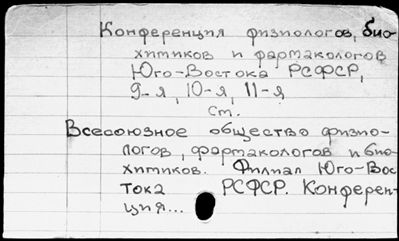 Конференция физиологов, био-
химиков и фармакологов
Юго-Востока РСФСР,
9-я, 10-я, 11-я
См.
Всесоюзное общество физио-
логов, фармакологов и био-
химиков. Филиал Юго-Вос
тока РСФСР. Конферен-
ция...